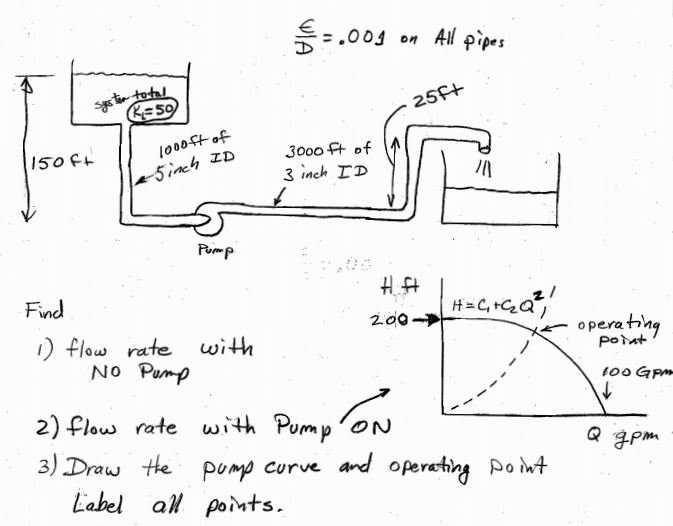 ϵ/D = .001 on All pipes
system total
K_L=50
150 ft
1000 ft of
5 inch ID
3000 ft of
3 inch ID
25ft
Pump
Find
1) flow rate with
NO Pump
2) flow rate with Pump ON
3) Draw the pump curve and operating point
Label all points.
H ft
200
H=C₁+C₂Q²
operating
point
100 GPM
Q gpm